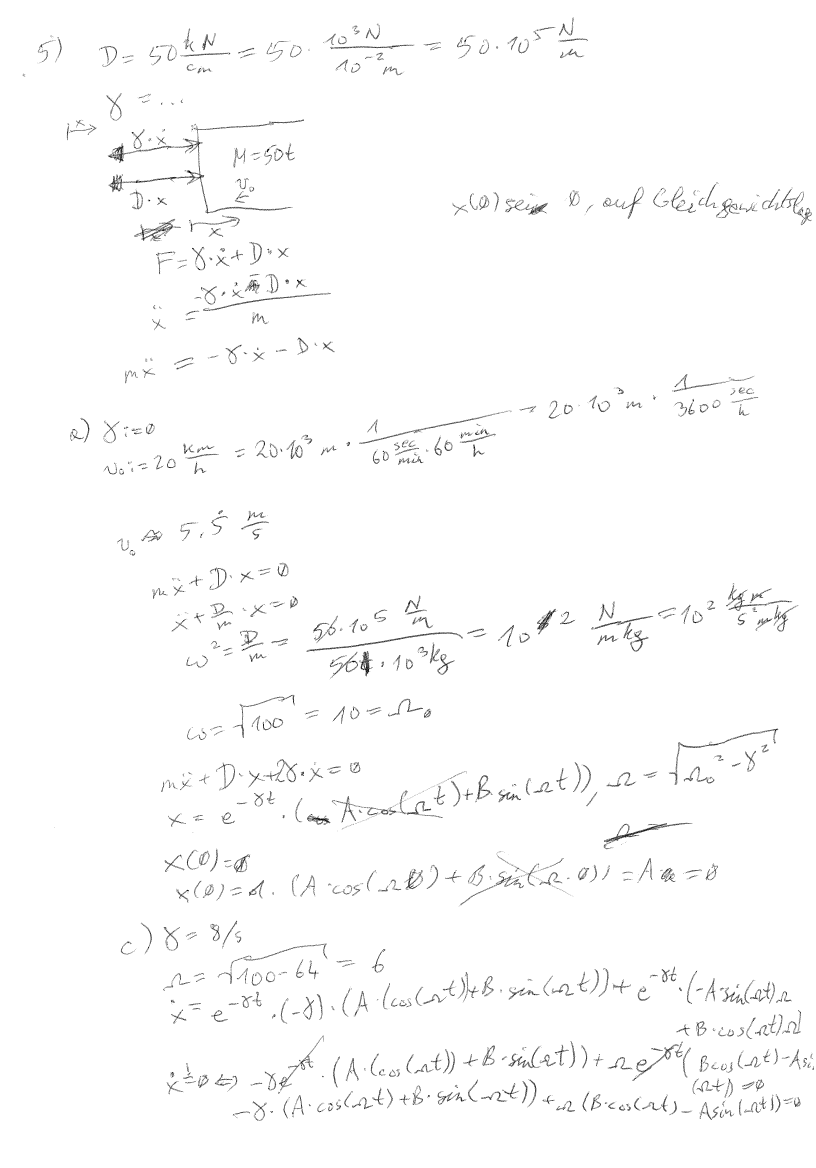 5) D = 50 kN/cm = 50 · 10³N/10⁻²m = 50 · 10⁵ N/m
γ = ...
x
γ · ẋ
M = 50t
D · x
v₀
x
x(0) sei 0, auf Gleichgewichtslage
F = γ · ẋ + D · x
ẍ = (-γ · ẋ - D · x)/m
mẍ = -γ · ẋ - D · x
a) γ := 0
v₀ := 20 km/h = 20 · 10³ m · 1/(60 sec/min · 60 min/h) = 20 · 10³ m · 1/(3600 sec/h)
v₀ ≈ 5,5̇ m/s
mẍ + D · x = 0
ẍ + D/m · x = 0
ω² = D/m = (50 · 10⁵ N/m)/(50 · 10³ kg) = 10² N/(m kg) = 10² kg m/(s² m kg)
ω = √100 = 10 = Ω₀
mẍ + D · x + 2γ · ẋ = 0
x = e^(-γt) · (A · cos(Ωt) + B · sin(Ωt)), Ω = √(Ω₀² - γ²)
x(0) = 0
x(0) = 1 · (A · cos(Ω0) + B · sin(Ω · 0)) = A = 0
c) γ = 8/s
Ω = √(100 - 64) = 6
ẋ = e^(-γt) · (-γ) · (A · (cos(Ωt)) + B · sin(Ωt)) + e^(-γt) · (-A · sin(Ωt)Ω
+ B · cos(Ωt)Ω)
ẋ != 0 ⇔ -γe^(-γt) · (A · (cos(Ωt)) + B · sin(Ωt)) + Ω e^(-γt) (B cos(Ωt) - A si
(Ωt)) = 0
-γ · (A · cos(Ωt) + B · sin(Ωt)) + Ω (B · cos(Ωt) - A sin(Ωt)) = 0